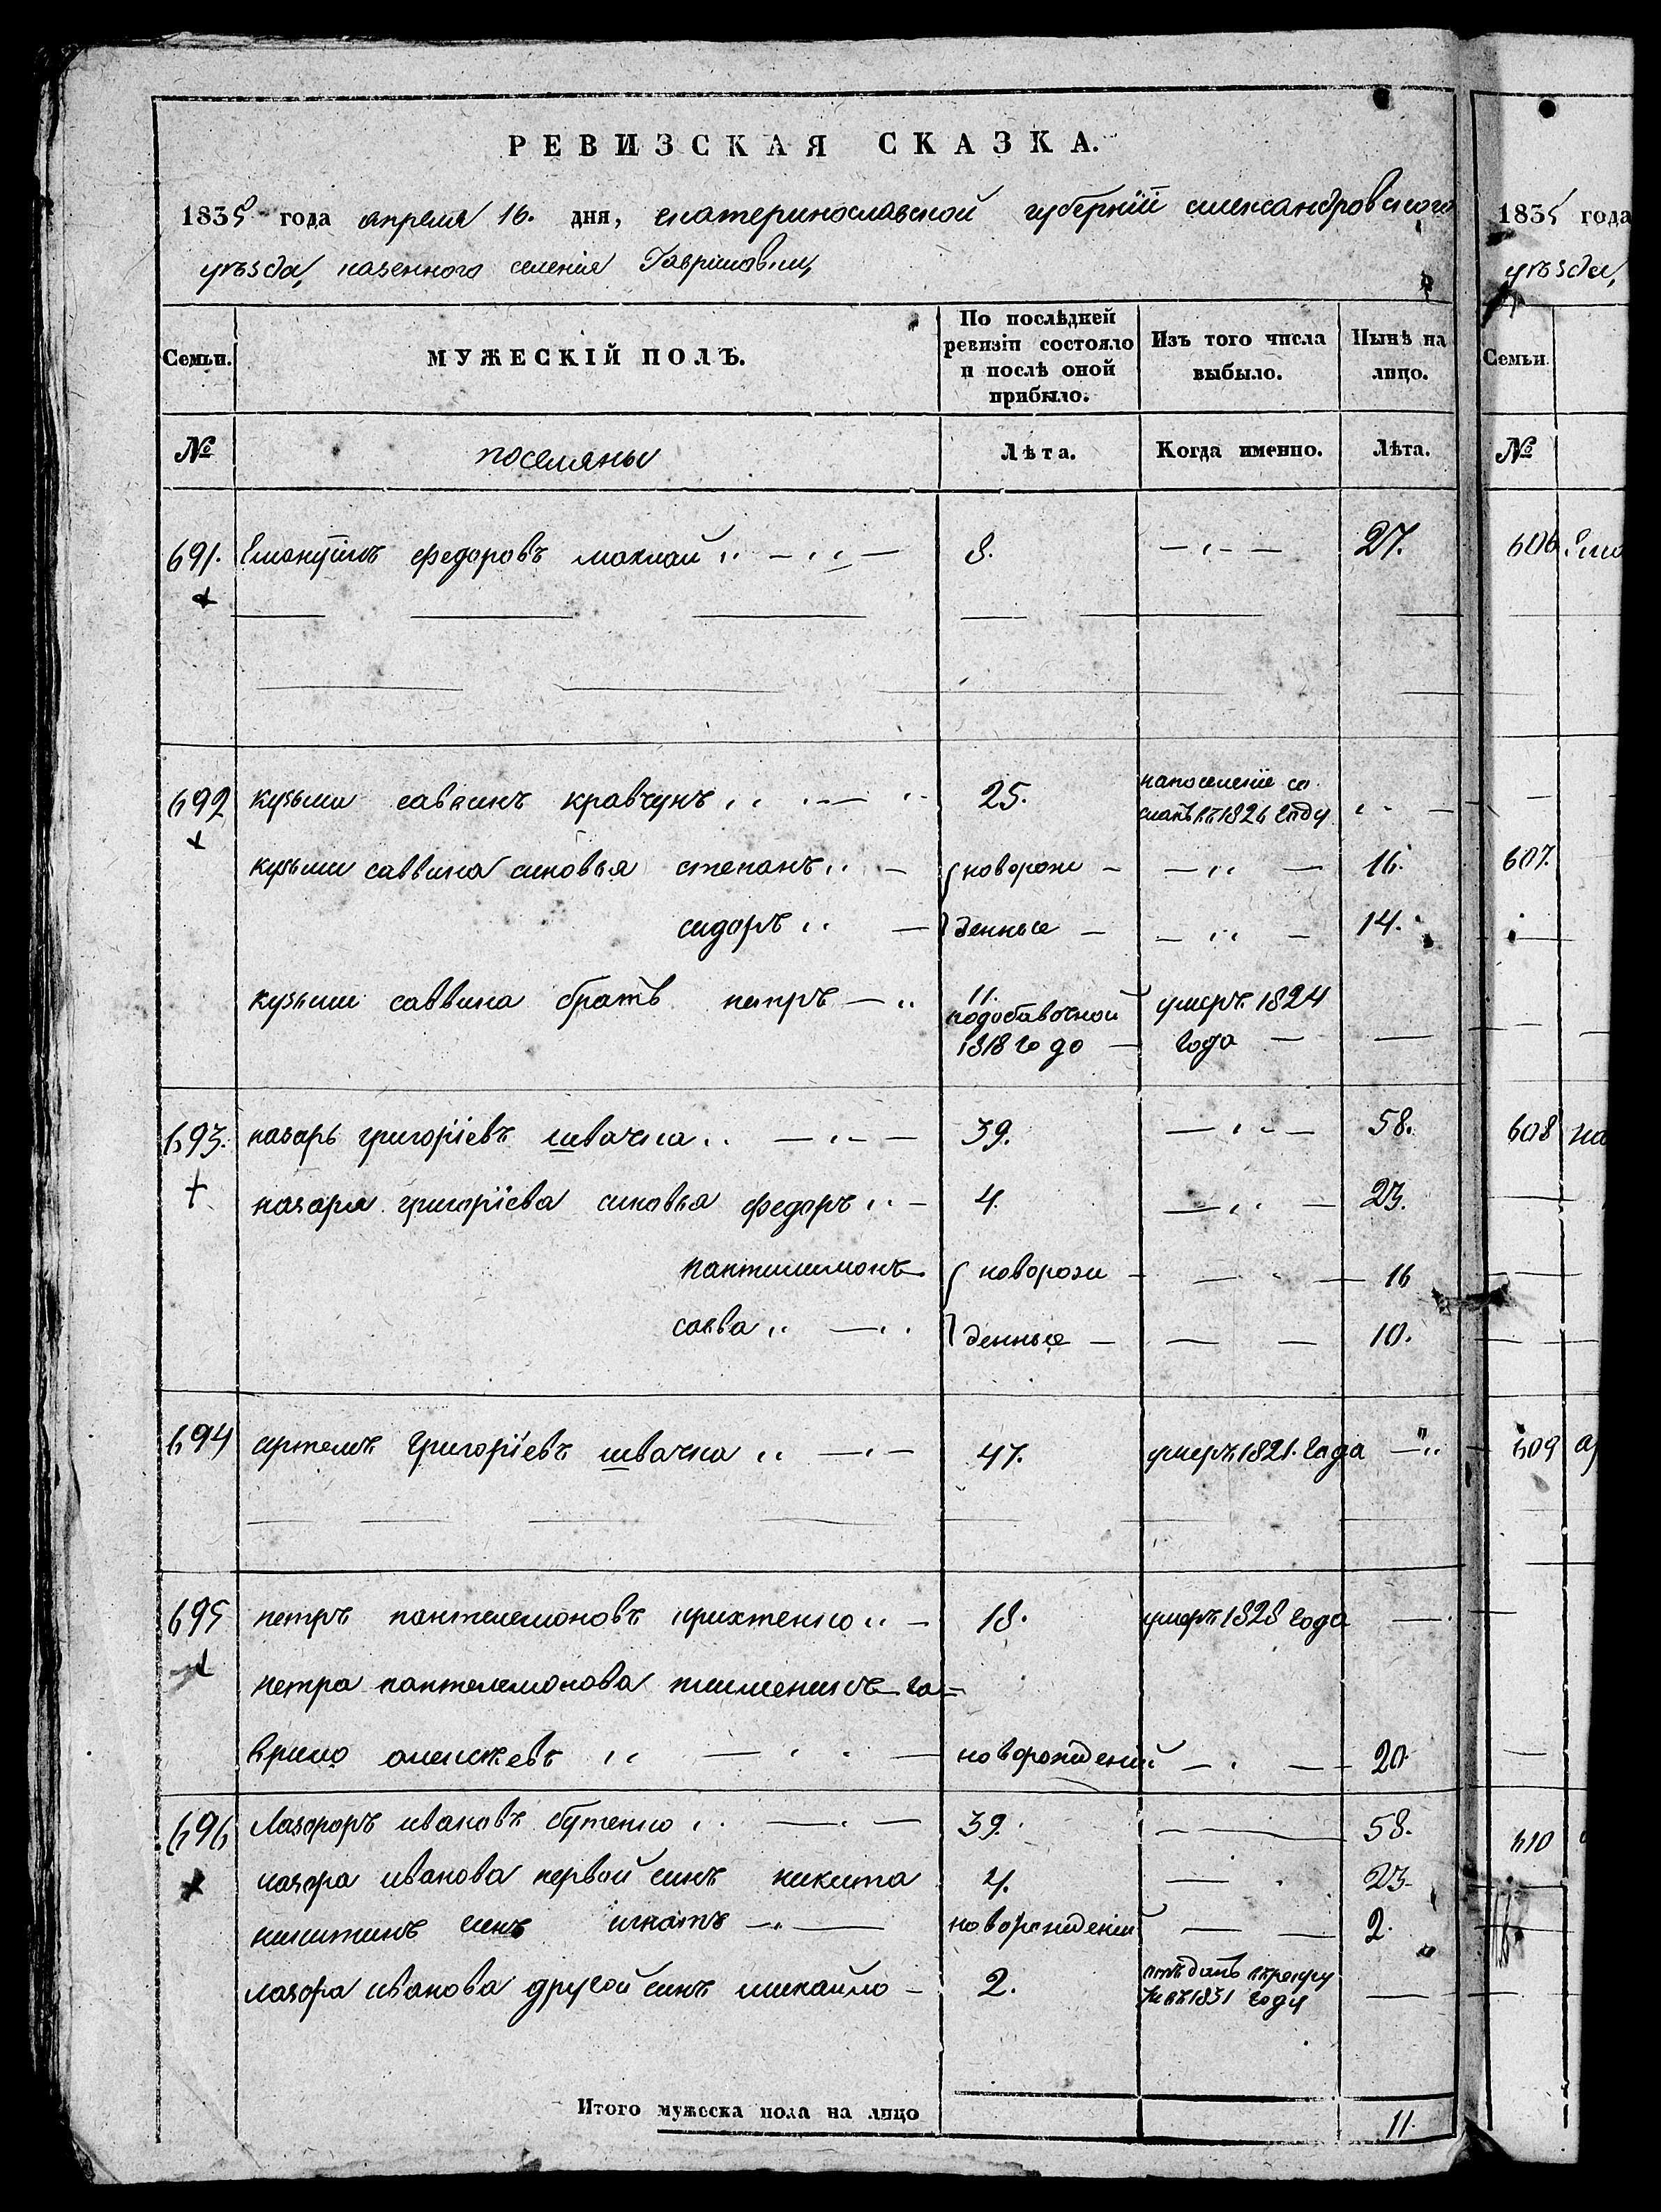 РЕВИЗСКАЯ СКАЗКА.
1835 года апреля 16. дня, екатеринославской губерніи александровского
уѣзда, казенного селенія Гавриловки,
Семьи.
МУЖЕСКІЙ ПОЛЪ.
По послѣдней
ревизіи состояло
и послѣ оной
прибыло.
Изъ того числа
выбыло.
Нынѣ на
лицо.
№ поселяны Лѣта. Когда именно. Лѣта.
691. федоровъ 8. 27.
692 кузьма саввинъ кравчунъ 25. напоселеніе со
сланъ въ 1826 году
кузьмы саввина сыновья степанъ новорож 16.
сидоръ денные 14.
кузьмы саввина братъ петръ 11.
подобавочной
1818 года
умеръ 1824
года
693. назаръ григоріевъ швачка 39. 58.
назара григоріева сыновья федоръ 4. 23.
пантилимонъ новорож 16
савва денные 10.
694 артемъ григоріевъ швачка 47. умеръ 1821. года
695 петръ пантелемоновъ 18. умеръ 1828 года
петра пантелемонова племенникъ га-
врило алексѣевъ новорожденій 20.
696 ивановъ бутенко 39. 58.
лазора иванова первой сынъ никита 4. 23.
никитинъ сынъ игнатъ новорожденій 2.
лазора иванова другой сынъ михайло 2. отъданъ врекру
ты въ 1831 году
Итого мужеска пола на лицо 11.
1835 года
уѣзда,
Семьи.
№
606.
607.
608 на
609 ар
610